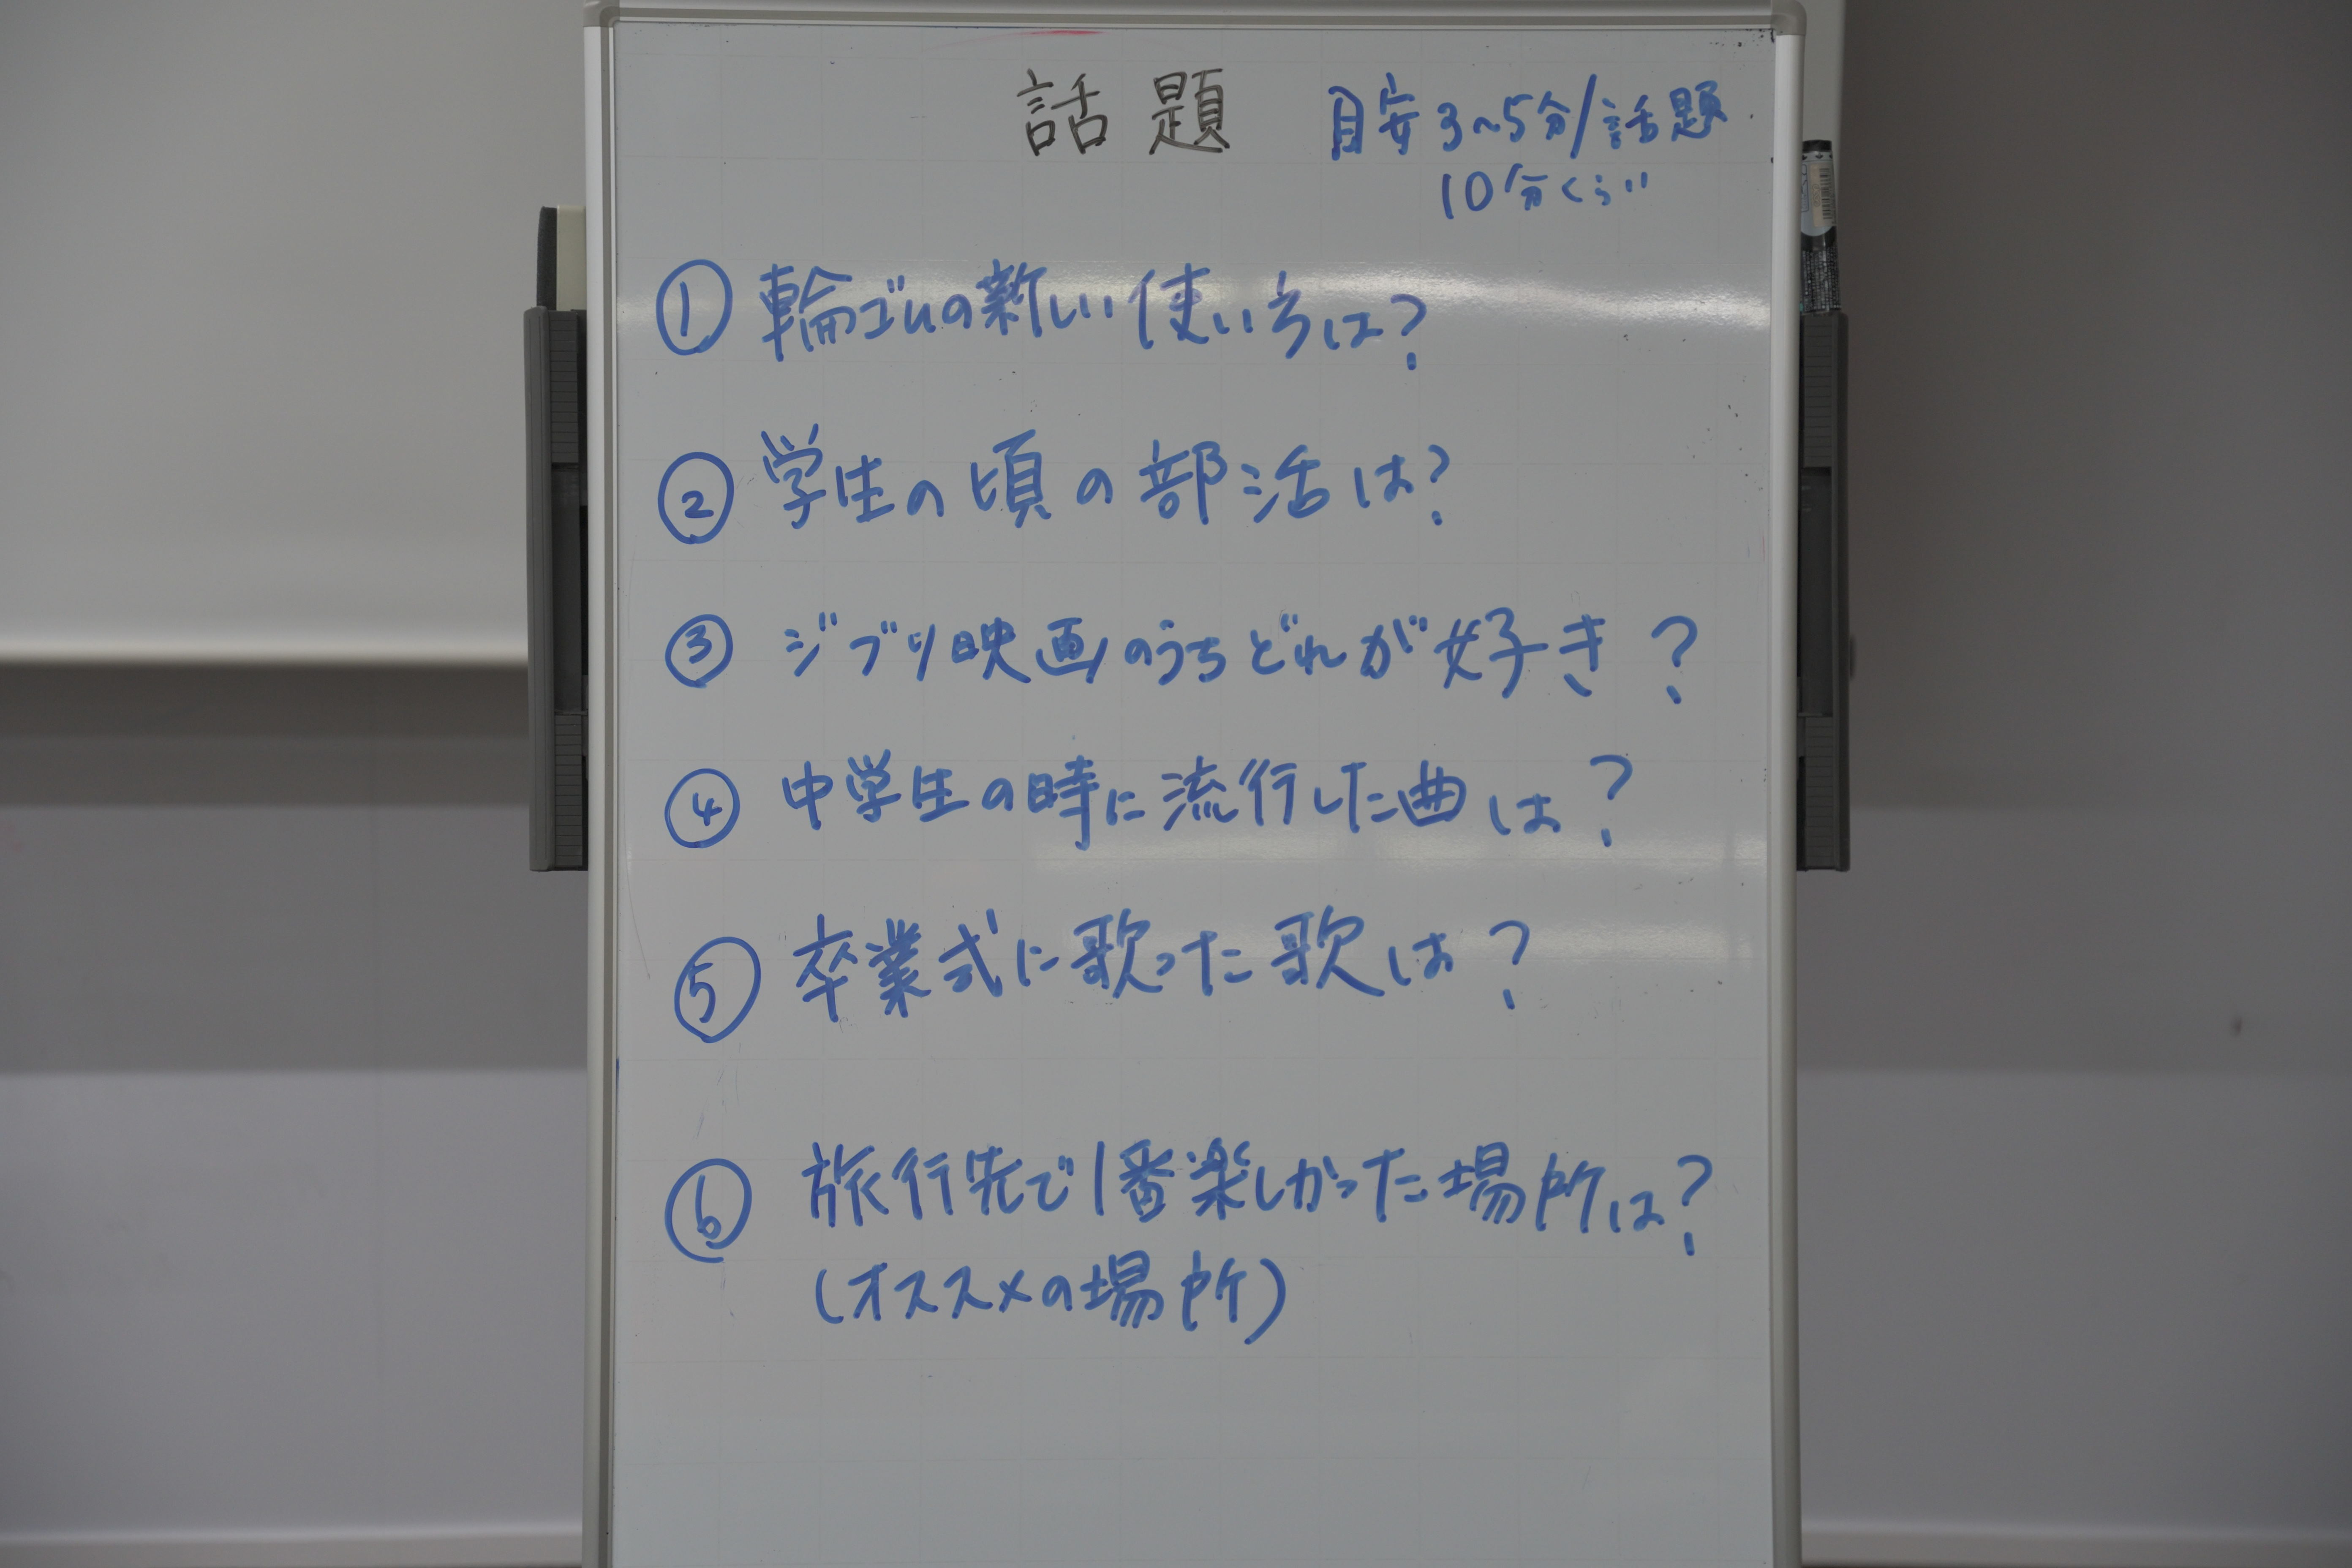 話題 目安3~5分/話題
10分くらい
① 輪ゴムの新しい使い方は?
② 学生の頃の部活は?
③ ジブリ映画のうちどれが好き?
④ 中学生の時に流行した曲は?
⑤ 卒業式に歌った歌は?
⑥ 旅行先で1番楽しかった場所は?
(オススメの場所)